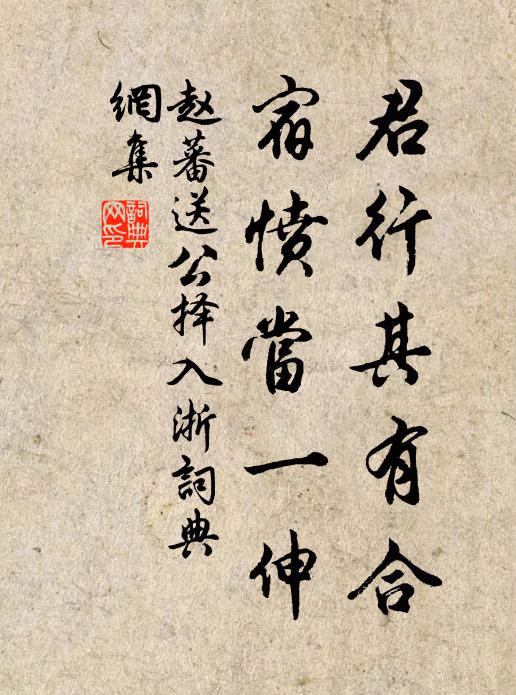 君行其有合
宿愤當一伸
赵蕃送公择入浙詞典
網集
詞典
网印